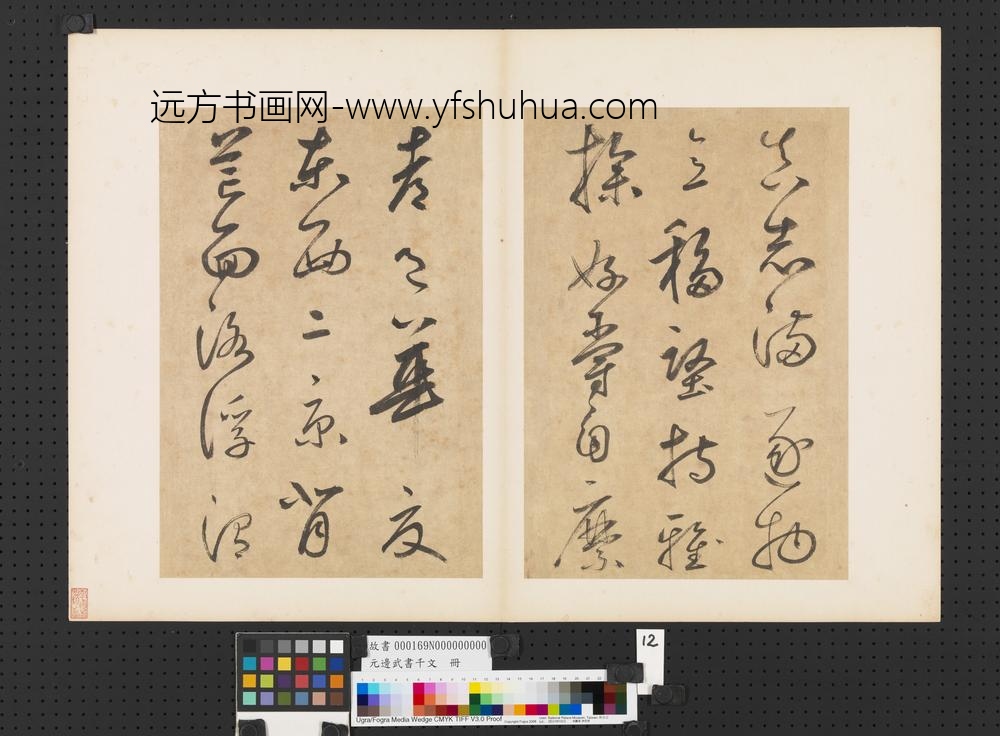 远方书画网-www.yfshuhua.com
真志滿逐物
意移堅持雅
操好爵自縻
都邑華夏
東西二京背
芒面洛浮渭
12
故書 000169N000000000
元邊武書千文 冊
Ugra/Fogra Media Wedge CMYK TIFF V3.0 Proof